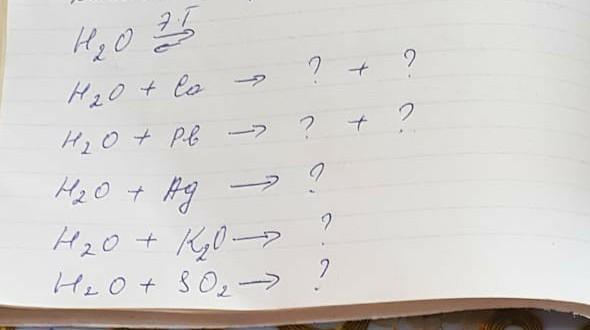 H₂O ⇌ Э.Т
H₂O + Ca → ? + ?
H₂O + Pb → ? + ?
H₂O + Ag → ?
H₂O + K₂O → ?
H₂O + SO₂ → ?